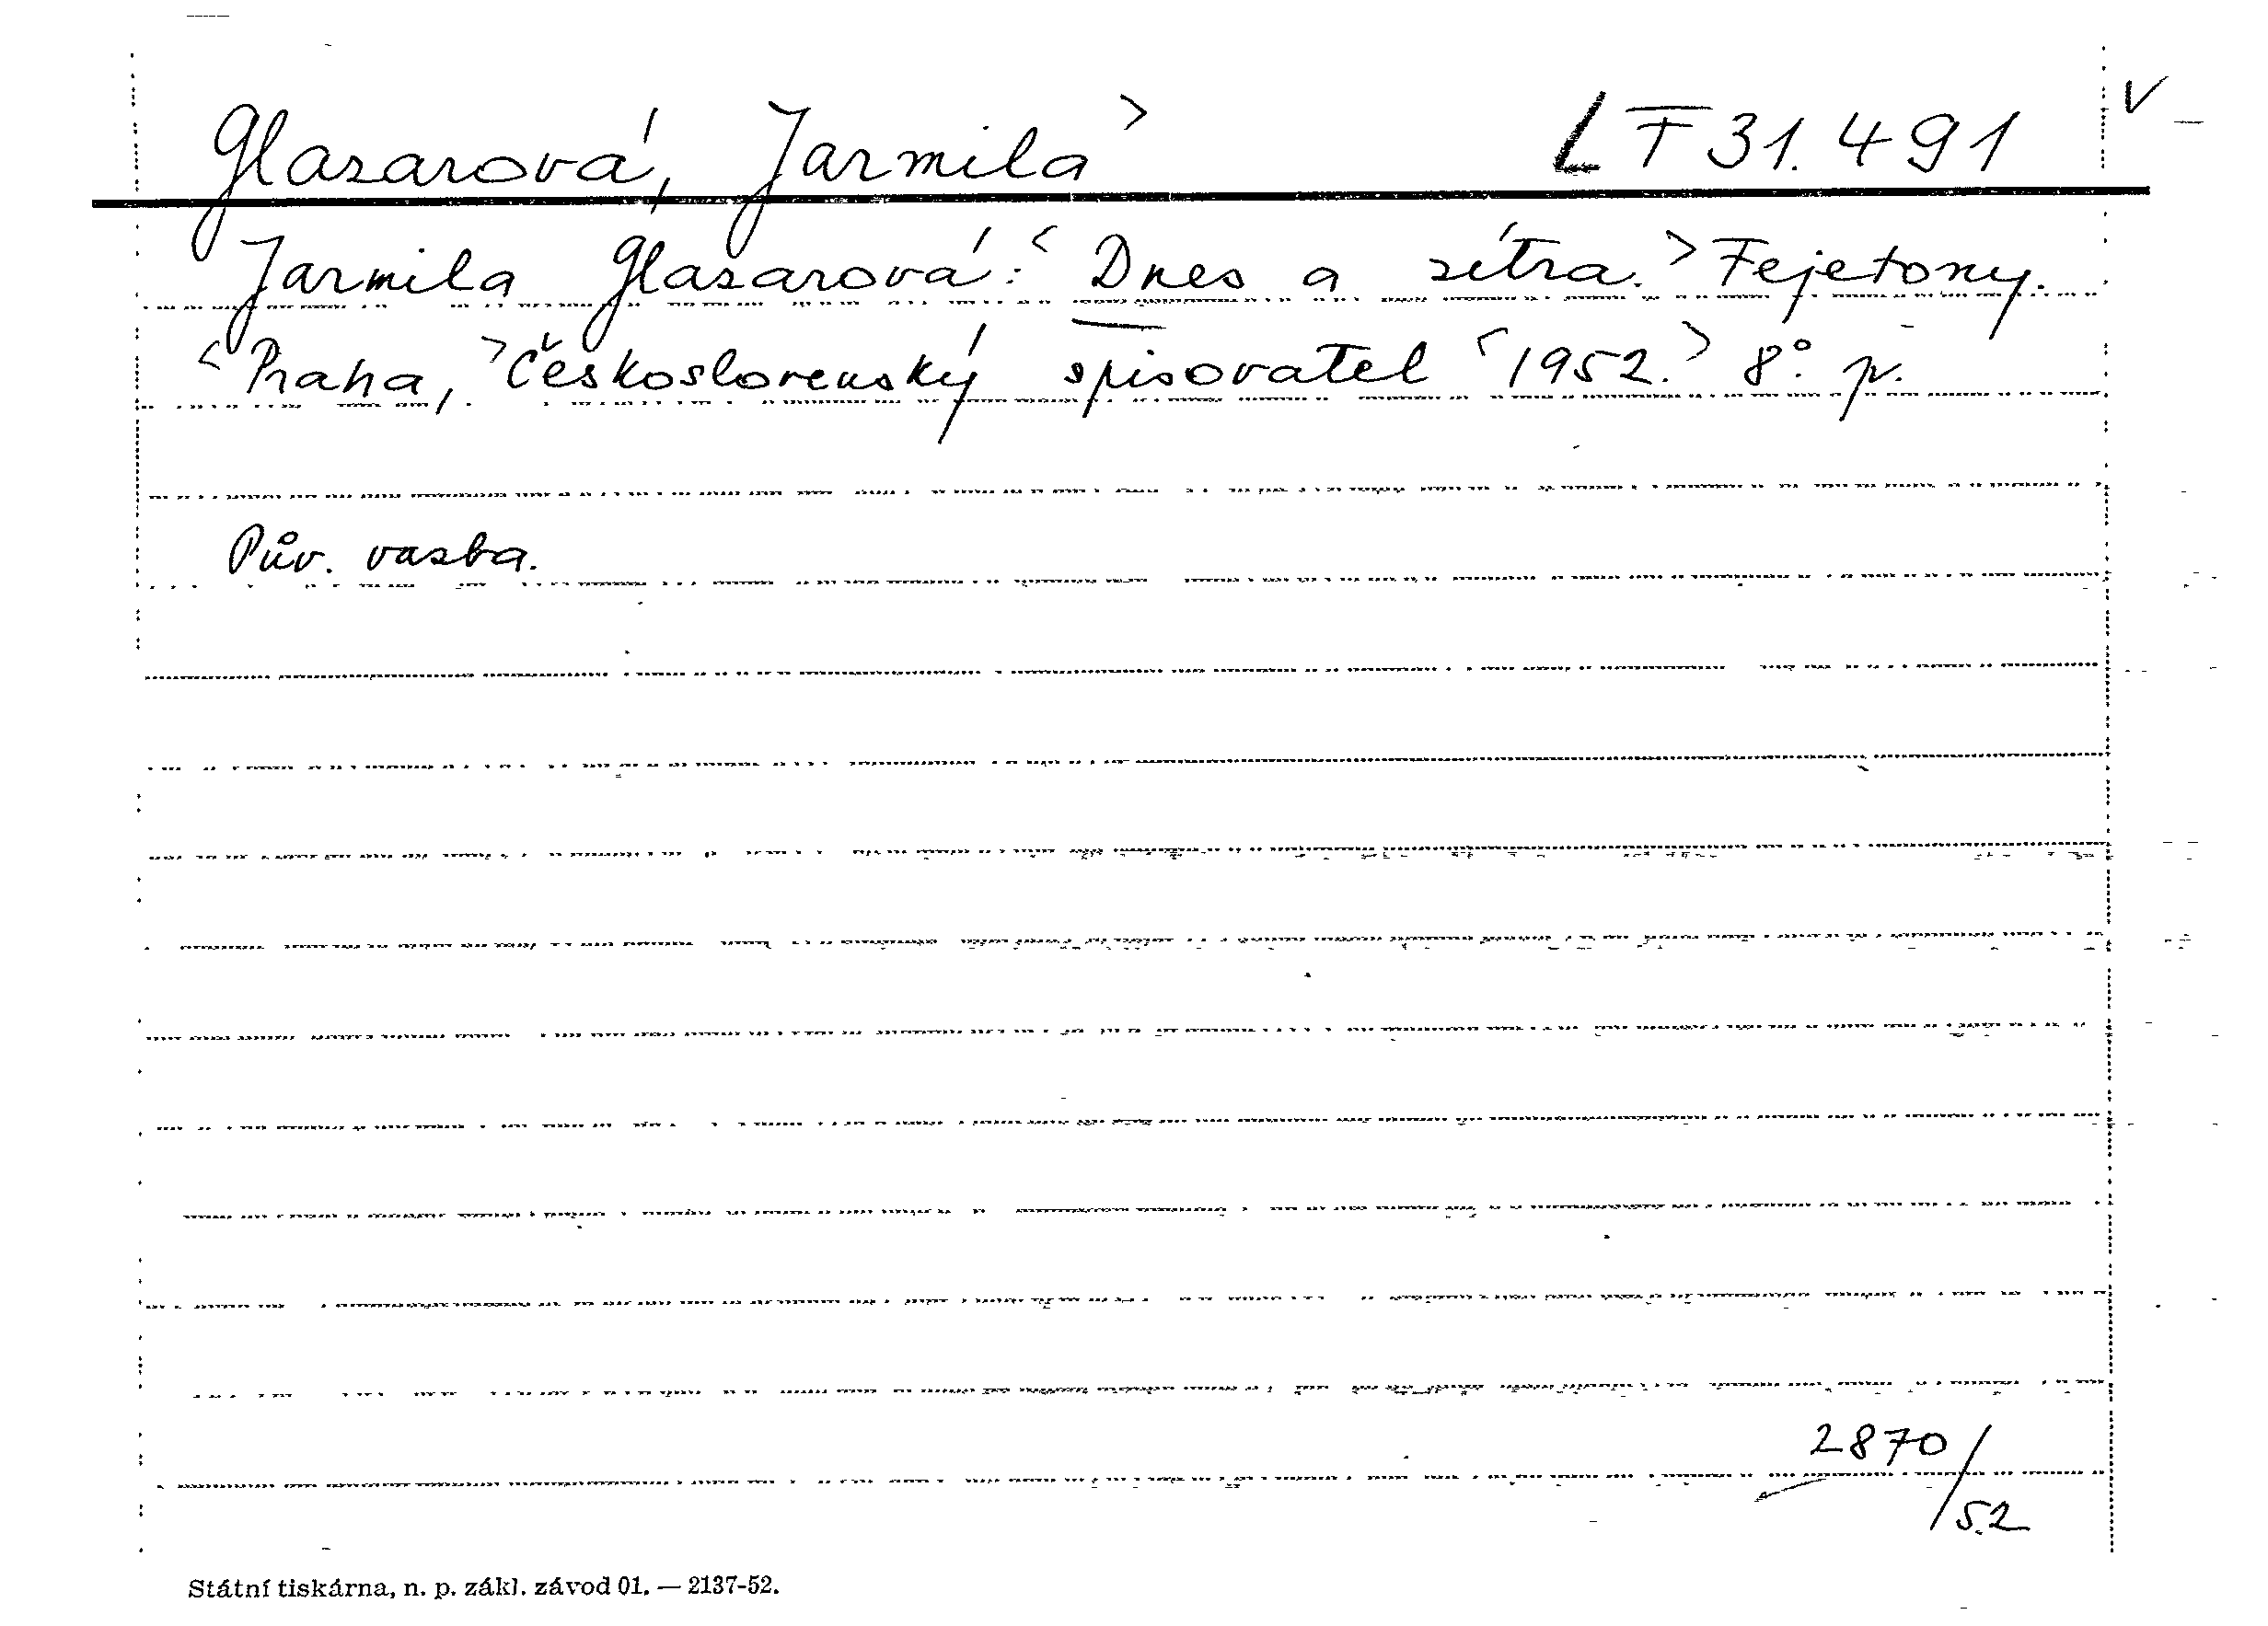 Glazarová, Jarmila > LT 31.491 V
Jarmila Glazarová: < Dnes a zítra. > Fejetony.
< Praha, > Československý spisovatel < 1952. > 8°. p.
Pův. vazba.
2870/52
Státní tiskárna, n. p. zákl. závod 01. — 2137-52.